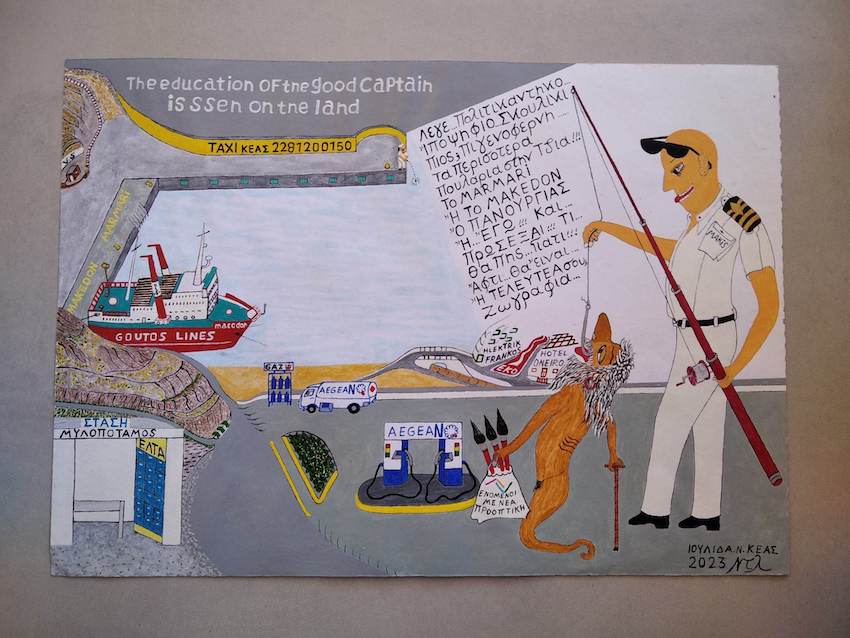 The education of the good captain
is ssen on the land
TAXI ΚΕΑΣ 2281200150
ΛΕΓΕ.. Πολιτικαντηκο..
Ποιος; Πιγενοφερνη....
τα περισοτερα
πουλαρια στην Τζια!!!
Το MARMARI
Ή ΤΟ ΜΑΚΕDON
Ο ΠΑΝΟΥΡΓΙΑΣ
Ή.. ΕΓΩ!!! ΚΑΙ...
ΠΡΟΣΕΞΑΙ!!! ΤΙ...
ΘΑ ΠΗΣ.. ΓΙΑΤΙ!!!
ΑΦΤΙ.. ΘΑ ΕΙΝΑΙ...
Ή ΤΕΛΕΥΤΕΑ ΣΟΥ
Ζωγραφια...
MAKEDON MARMARI
MAKIS
MACEDON
GOUTOS LINES
HLEKTRIK
FRANKO
EKO
HOTEL
ONEIRO
GAZ
AEGEAN
ΣΤΑΣΗ
ΜΥΛΟΠΟΤΑΜΟΣ
ΕΛΤΑ
AEGEAN
ΕΝΟΜΕΝΟΙ
ΜΕ ΝΕΑ
ΠΡΟΟΠΤΙΚΗ
ΙΟΥΛΙΔΑ.Ν.ΚΕΑΣ
2023